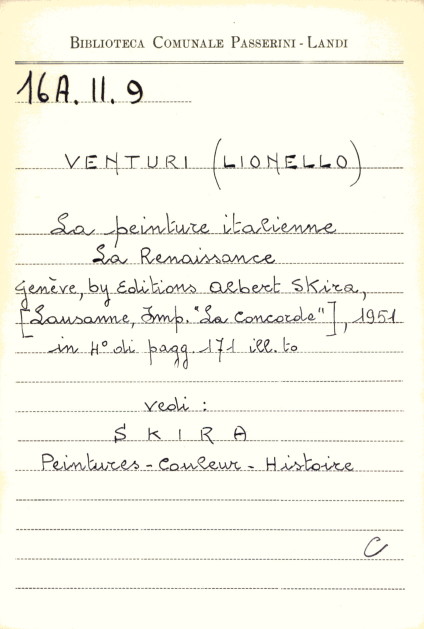 BIBLIOTECA COMUNALE PASSERINI - LANDI
16A. II. 9
VENTURI (LIONELLO)
La peinture italienne
La Renaissance
Genève, by Editions Albert Skira,
[Lausanne, Imp. "La Concorde"], 1951
in 4° di pagg. 171 ill.to
vedi :
S K I R A
Peintures - Couleur - Histoire
C